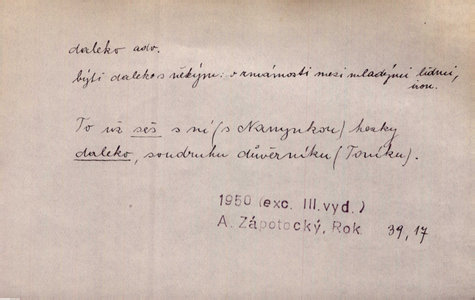 daleko adv.
býti daleko s někým: o známosti mezi mladými lidmi,
iron.
To už seš s ní (s Nanynkou) hezky
daleko, soudruhu důvěrníku (Toníku).
1950 (exc. III. vyd.)
A. Zápotocký, Rok 39, 17